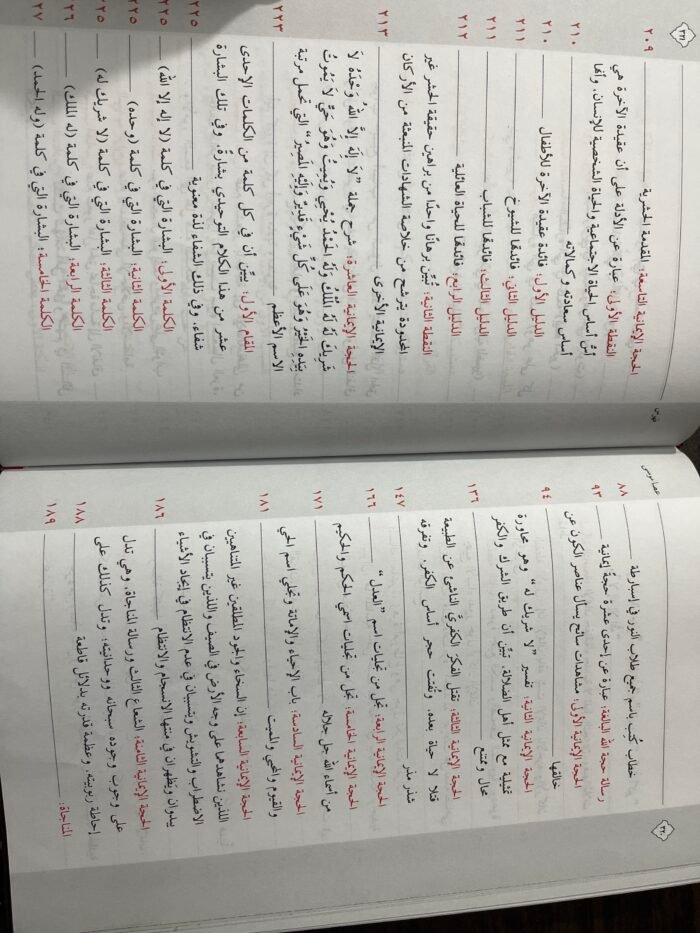 ٣٢٠
عصا موسى
خطاب كُتب باسم جميع طلاب النور في إسبارطة ٨٨
رسالة حجة الله البالغة: عبارة عن إحدى عشرة حجة إيمانية ٩٣
الحجة الإيمانية الأولى: مشاهدات سائح يسأل عناصر الكون عن
خالقها ٩٤
الحجة الإيمانية الثانية: تفسير "لا شريك له" وهو محاورة
تمثيلية مع ممثل أهل الضلالة، تبيِّن أن طريق الشرك والكفر
محال وممتنع ١٣٦
الحجة الإيمانية الثالثة: تقتل الفكرَ الكفريَّ الناشئ عن الطبيعة
قتلا لا حياة بعده، وتُفتت حجر أساس الكفر، وتفرقه
شذر مذر ١٤٧
الحجة الإيمانية الرابعة: تجلٍ من تجليات اسم "العدل" ١٦٦
الحجة الإيمانية الخامسة: تجل من تجليات اسمي الحكم والحكيم
من أسماء الله جل جلاله ١٧١
الحجة الإيمانية السادسة: باب الإحياء والإماتة وتجلي اسم الحي
والقيوم والمحيي والمميت ١٨١
الحجة الإيمانية السابعة: إن السخاء والجود المطلقين غير المتناهيين
اللذين نشاهدهما على وجه الأرض في الصيف واللذين يتسببان في
الاضطراب والتشويش ويتسببان في عدم الانتظام في إيجاد الأشياء
يبدوان ويَظهران في منتهى الانسجام والانتظام ١٨٦
الحجة الإيمانية الثامنة: الشعاع الثالث ورسالة المناجاة، وهي تدل
على وجوب وجوده سبحانه ووحدانيته؛ وتدل كذلك على
إحاطة ربوبيته، وعظمة قدرته بدلائل قاطعة ١٨٨
المناجاة: ١٨٩
٣٢١
فهرس
الحجة الإيمانية التاسعة: المقدمة الحشرية ٢٠٩
النقطة الأولى: عبارة عن الأدلة على أن عقيدة الآخرة هي
أسُّ أساس الحياة الاجتماعية والحياة الشخصية للإنسان، وأنها
أساس سعادته وكمالاته ٢١٠
الدليل الأول: فائدة عقيدة الآخرة للأطفال ٢١٠
الدليل الثاني: فائدتها للشيوخ ٢١١
الدليل الثالث: فائدتها للشباب ٢١١
الدليل الرابع: فائدتها للحياة العائلية ٢١٢
النقطة الثانية: تُبيِّن برهانًا واحدًا من براهين حقيقة الحشر غير
المحدودة يترشح من خلاصة الشهادات المنبعثة من الأركان
الإيمانية الأخرى ٢١٣
الحجة الإيمانية العاشرة: شرح جملة "لَا إِلَهَ إِلَّا اللهُ وَحْدَهُ لَا
شَرِيكَ لَهُ لَهُ الْمُلْكُ وَلَهُ الْحَمْدُ يُحْيِي وَيُمِيتُ وَهُوَ حَيٌّ لَا يَمُوتُ
بِيَدِهِ الْخَيْرُ وَهُوَ عَلَى كُلِّ شَيْءٍ قَدِيرٌ وَإِلَيْهِ الْمَصِيرُ" التي تحمل مرتبة
الاسم الأعظم ٢٢٣
المقام الأول: يبيِّن أن في كل كلمة من الكلمات الإحدى
عشر من هذا الكلام التوحيدي بشارةً، وفي تلك البشارة
شفاء، وفي ذلك الشفاء لذة معنوية ٢٢٥
الكلمة الأولى: البشارة التي في كلمة (لا إله إلا الله) ٢٢٥
الكلمة الثانية: البشارة التي في كلمة (وحده) ٢٢٥
الكلمة الثالثة: البشارة التي في كلمة (لا شريك له) ٢٢٥
الكلمة الرابعة: البشارة التي في كلمة (له الملك) ٢٢٦
الكلمة الخامسة: البشارة التي في كلمة (وله الحمد) ٢٢٧